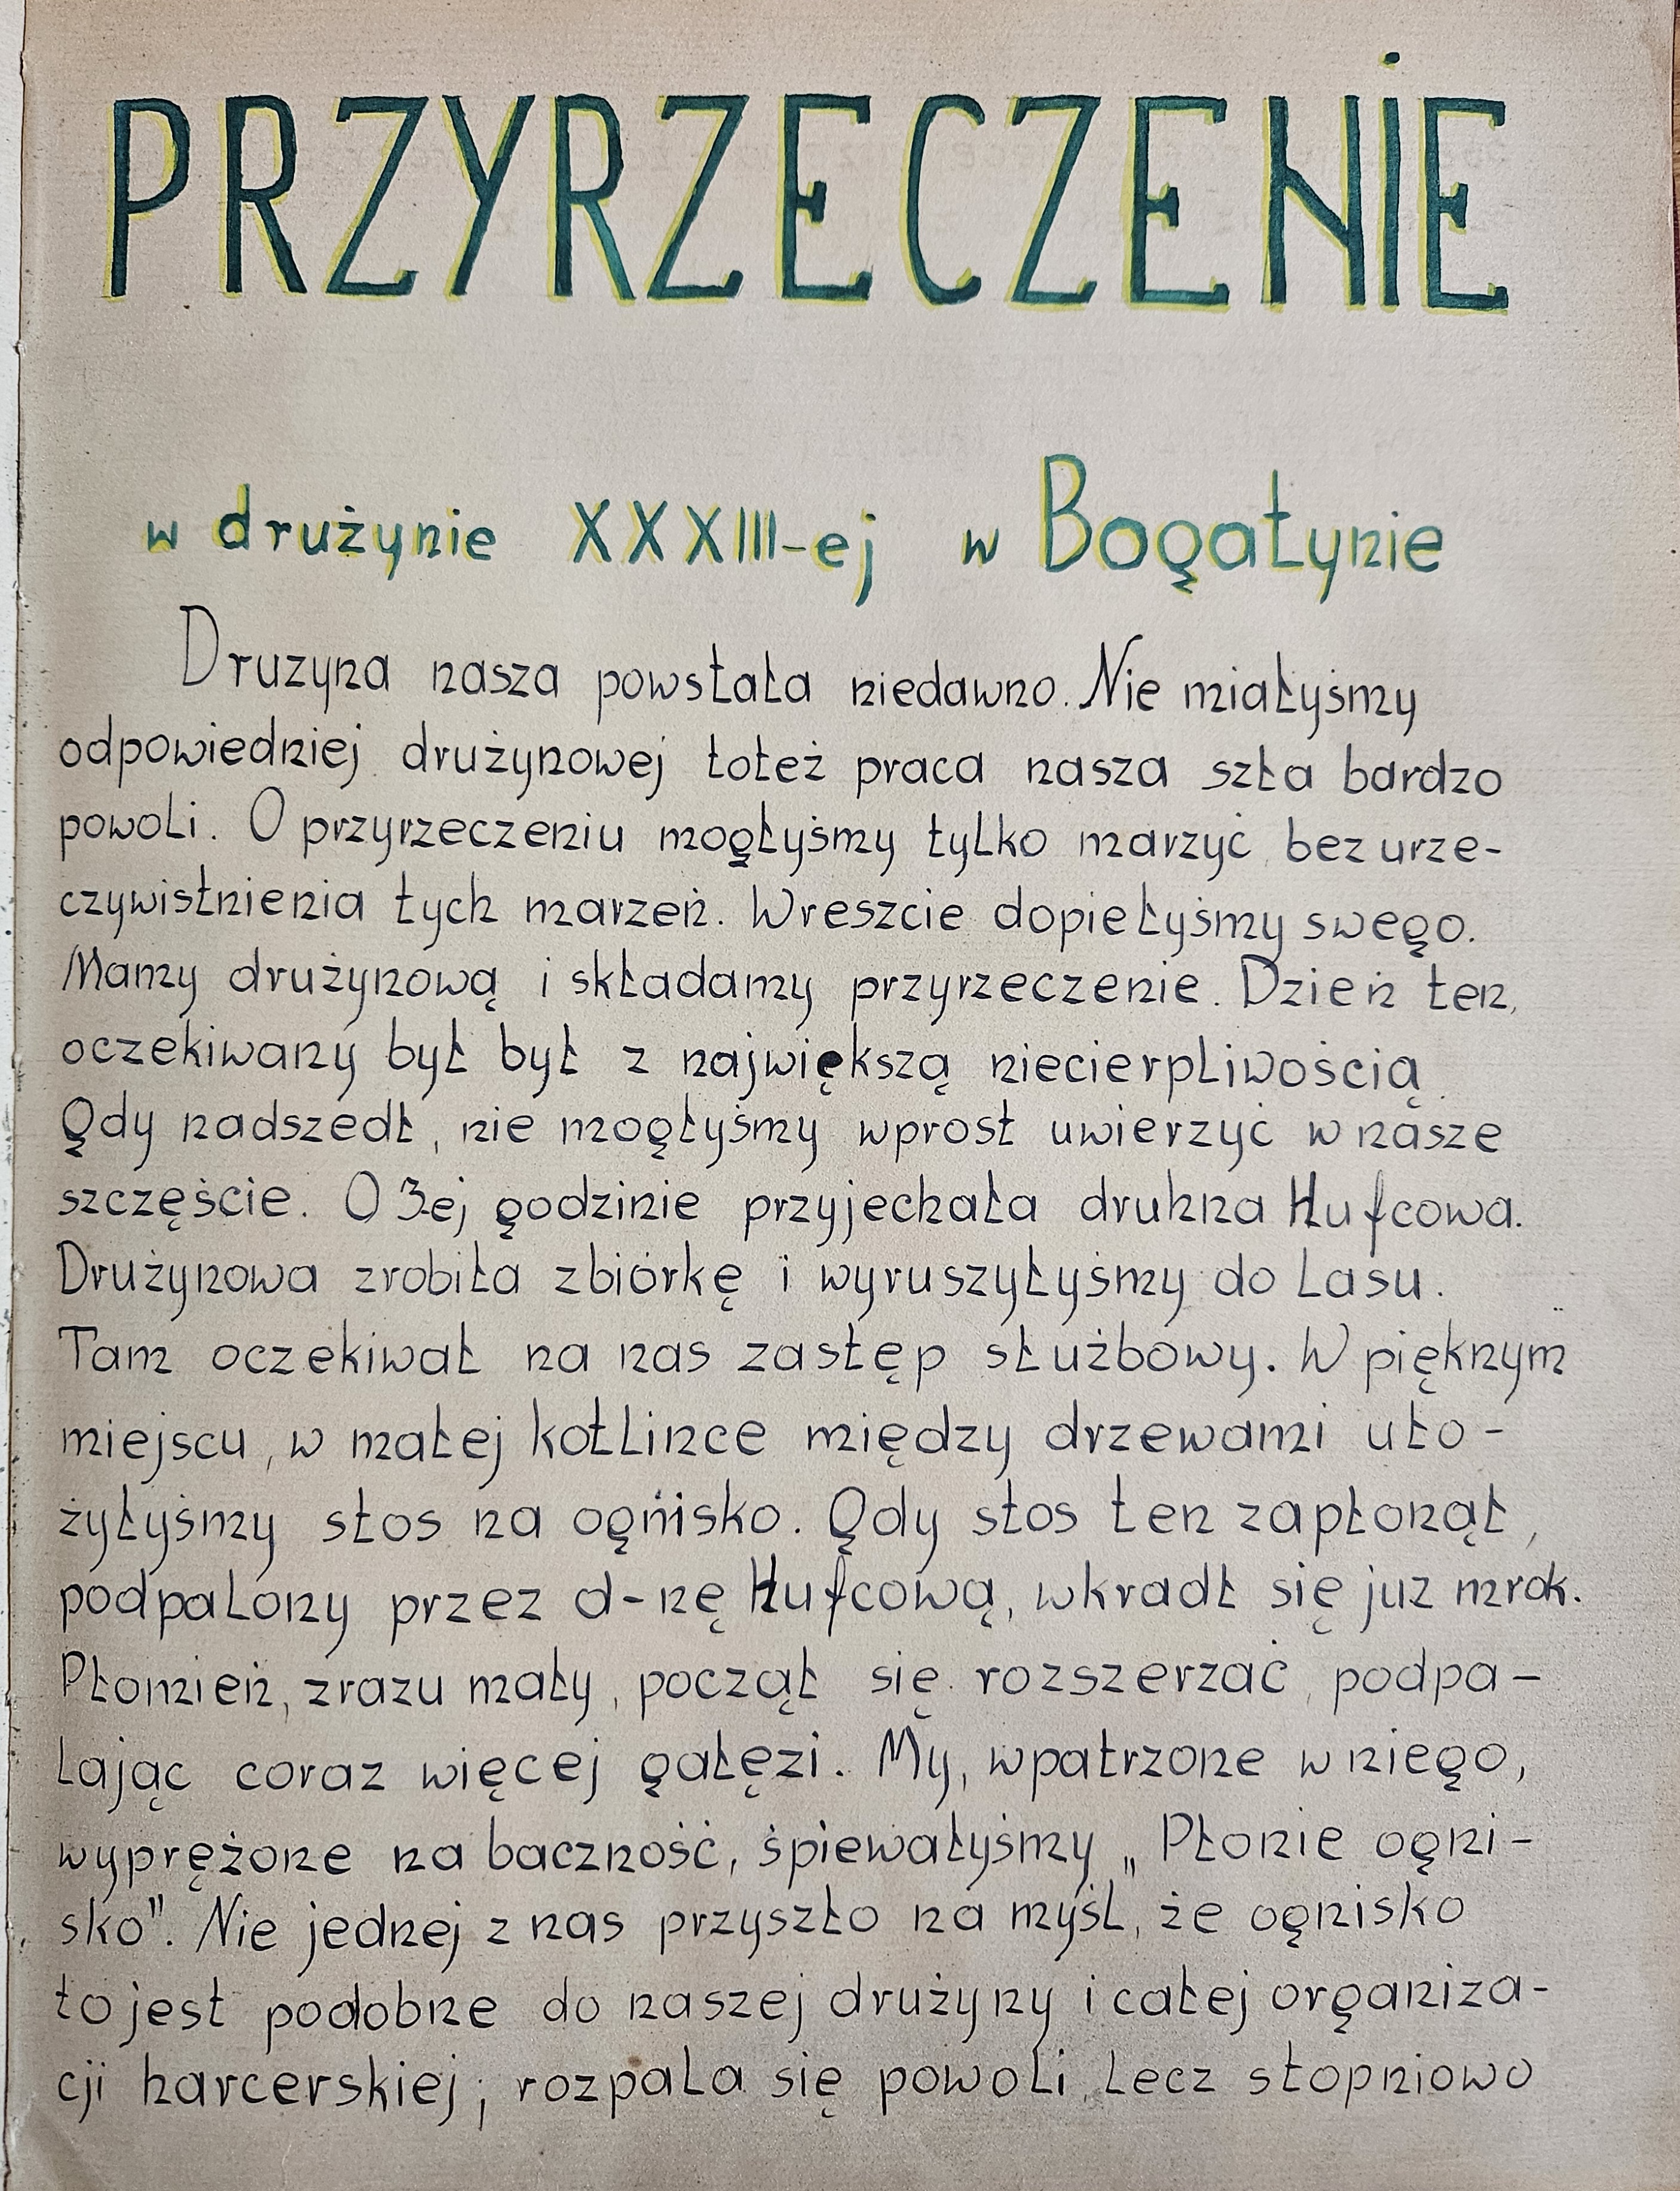 PRZYRZECZENIE
w drużynie XXXIII-ej w Bogatynie
Druzyna nasza powstała niedawno. Nie miałyśmy
odpowiedniej drużynowej toteż praca nasza szła bardzo
powoli. O przyrzeczeniu mogłyśmy tylko marzyć, bez urze-
czywistnienia tych marzeń. Wreszcie dopiełyśmy swego.
Mamy drużynową i składamy przyrzeczenie. Dzień ten,
oczekiwany był był z największą niecierpliwością.
Gdy nadszedł, nie mogłyśmy wprost uwierzyć w nasze
szczęście. O 3-ej godzinie przyjechała druhna Hufcowa.
Drużynowa zrobiła zbiórkę i wyruszyłyśmy do lasu.
Tam oczekiwał na nas zastęp służbowy. W pięknym
miejscu, w małej kotlince między drzewami uło-
żyłyśmy stos na ognisko. Gdy stos ten zapłonął,
podpalony przez d-nę Hufcową, wkradł się już mrok.
Płomień, zrazu mały, począł się rozszerzać, podpa-
lając coraz więcej gałęzi. My, wpatrzone w niego,
wyprężone na baczność, śpiewałyśmy „Płonie ogni-
sko". Nie jednej z nas przyszło na myśl, że ognisko
to jest podobne do naszej drużyny i całej organiza-
cji harcerskiej; rozpala się powoli, lecz stopniowo